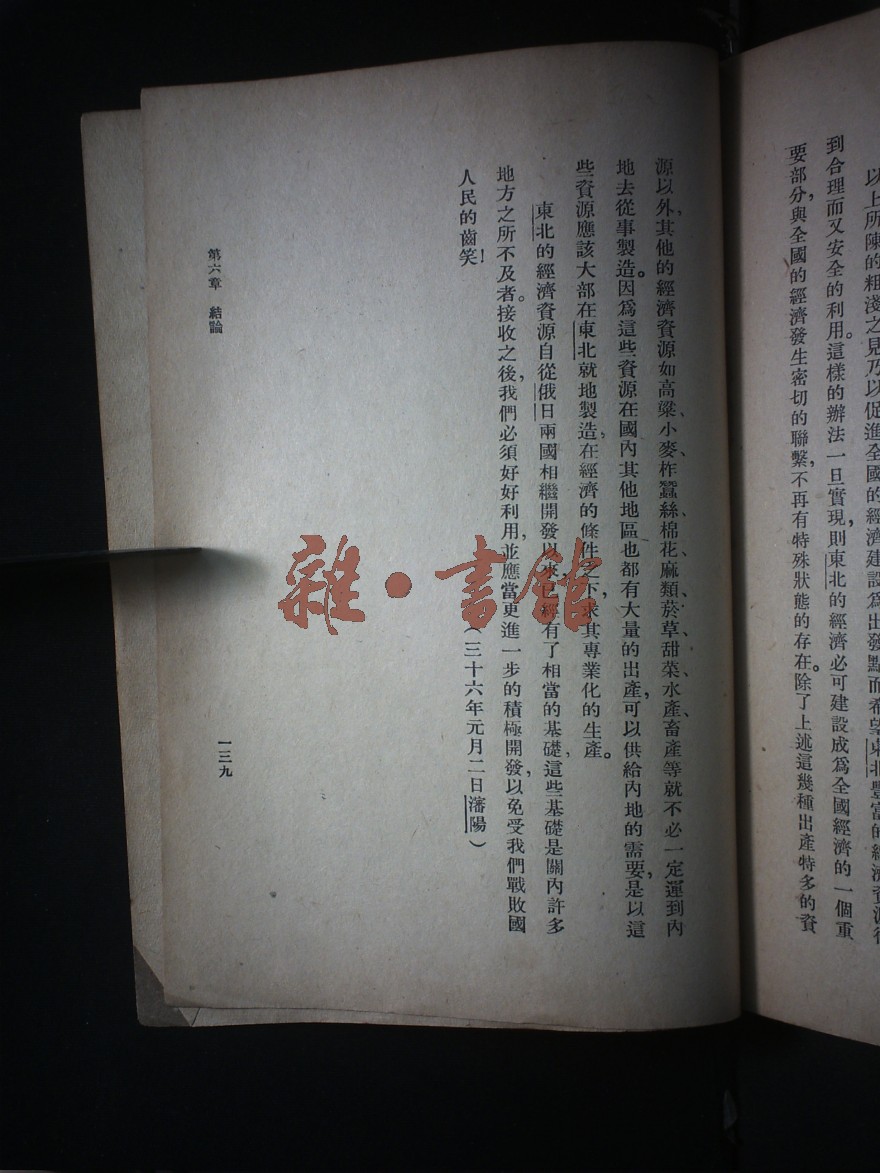 以上所陳的粗淺之見乃以促進全國的經濟建設爲出發點而希望東北豐富的經濟資源得
到合理而又安全的利用。這樣的辦法一旦實現，則東北的經濟必可建設成爲全國經濟的一個重
要部分，與全國的經濟發生密切的聯繫，不再有特殊狀態的存在。除了上述這幾種出產特多的資
源以外，其他的經濟資源如高粱、小麥、柞蠶絲、棉花、麻類、菸草、甜菜、水產、畜產等就不必一定運到內
地去從事製造。因爲這些資源在國內其他地區也都有大量的出產，可以供給內地的需要，是以這
些資源應該大部在東北就地製造，在經濟的條件之下，求其專業化的生產。
東北的經濟資源自從俄日兩國相繼開發以來，已經有了相當的基礎，這些基礎是關內許多
地方之所不及者。接收之後，我們必須好好利用，並應當更進一步的積極開發，以免受我們戰敗國
人民的齒笑！
（三十六年元月二日瀋陽）
第六章 結論
一三九
雜·書館